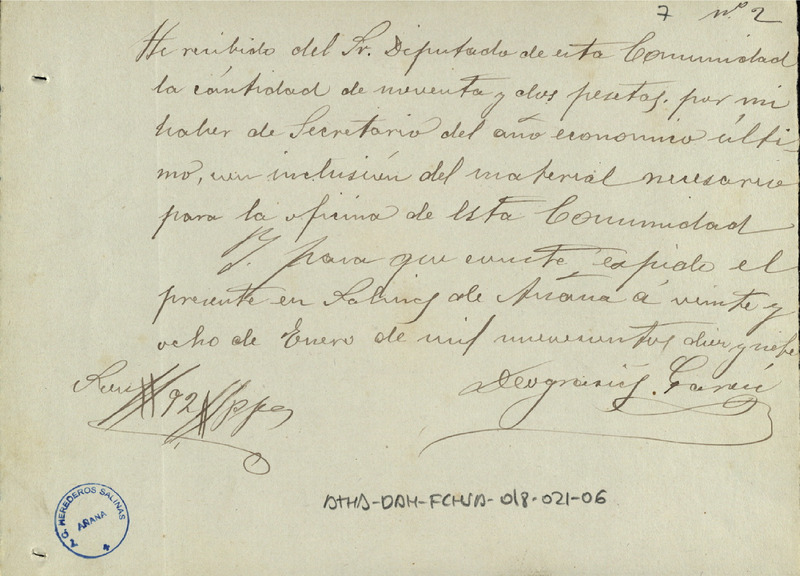 7 nº 2
He recibido del Sr. Diputado de esta Comunidad
la cántidad de noventa y dos pesetas. por mi
haber de Secretario del año economico últi-
mo, con inclusión del material necesario
para la oficina de Esta Comunidad
Y para que conste, expido el
presente en Salinas de Añana á veinte y
ocho de Enero de mil novecientos diez y siete
Deogracias
Son # 92 # ppas
T. G. HEREDEROS SALINAS
AÑANA
ATHA-DAH-FCHSA-018-021-06